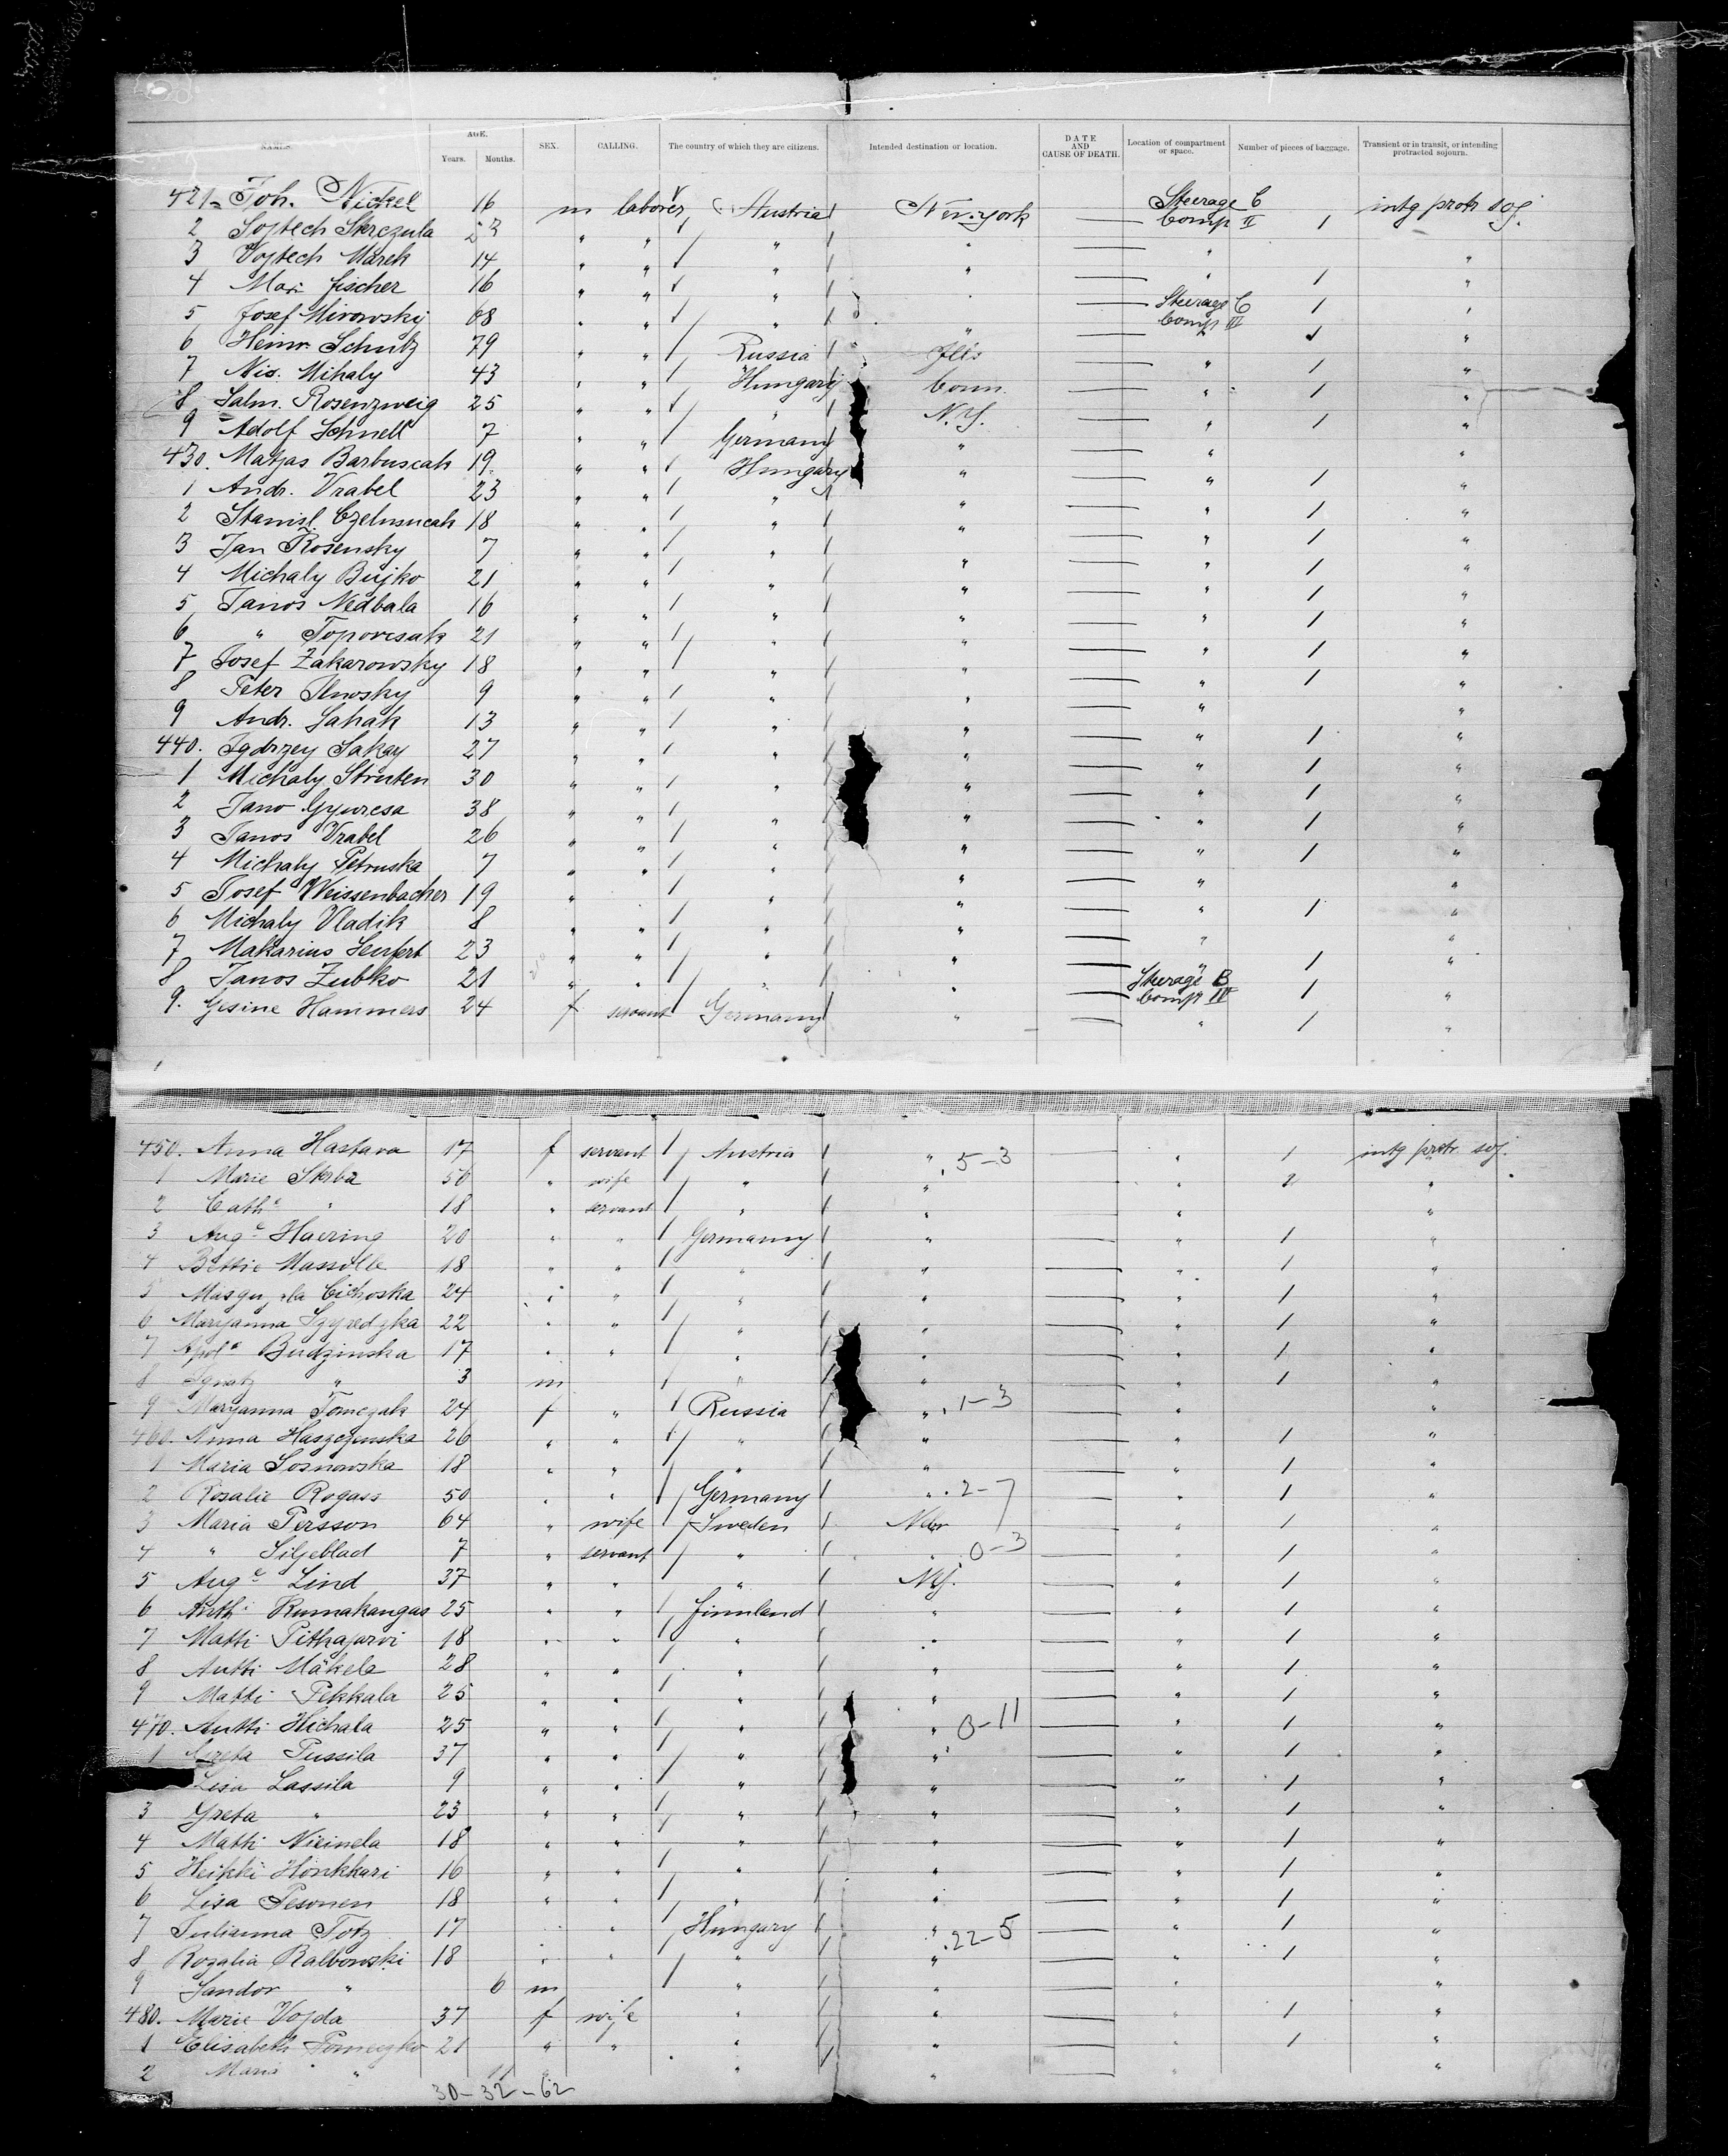 NAMES. AGE. Years. Months. SEX. CALLING. The country of which they are citizens. Intended destination or location. DATE AND CAUSE OF DEATH. Location of compartment or space. Number of pieces of baggage. Transient or in transit, or intending protracted sojourn.
421. Joh. Nickel 16 m laborer Austria New-York — Steerage C Comp II 1 intg protr soj.
2 Sojtech Skrczula " " " " — " "
3 Vojtech Marek 14 " " " " — " 1 "
4 Max Fischer 16 " " " — Steerage C Comp III 1 "
5 Josef Mirowsky 68 " " " " — " "
6 Heinr. Schultz 79 " " Russia Ills — " 1 "
7 Mihaly 43 " " Hungary Conn. — " 1 "
8 Salm. Rosenzweig 25 " " " N.Y. — " 1 "
9 Adolf Schnell 7 " " Germany " — " "
430. Matjas Barbuscak 19 " " Hungary " — " 1 "
1 Andr. Vrabel 23 " " " " — " 1 "
2 Stanisl. 18 " " " " — " 1 "
3 Jan Rosensky 7 " " " " — " 1 "
4 Michaly Bujko 21 " " " " — " 1 "
5 Janos Nedbala 16 " " " " — " 1 "
6 " Topovcsak 21 " " " " — " 1 "
7 Josef Zakarowsky 18 " " " " — " 1 "
8 Peter 9 " " " " — " "
9 Andr. 13 " " " " — " 1 "
440. Sakay 27 " " " " — " 1 "
1 Michaly Struten 30 " " " " — " 1 "
2 Jano Gyurcsa 38 " " " " — " 1 "
3 Janos Vrabel 26 " " " " — " 1 "
4 Michaly Petruska 7 " " " " — " "
5 Josef Weissenbacher 19 " " " " — " 1 "
6 Michaly Vladik 8 " " " " — " "
7 Makarius Seufert 23 " " " " — " 1 "
8 Janos Zubko 21 " " " " — Steerage B Comp IV 1 "
9. Gesine Hammers 24 f servant Germany " — " 1 "
450. Anna Hastava 17 f servant Austria " 5-3 — " 1 intg protr soj.
1 Marie Skrba 50 " wife " " — " 2 "
2 Cathe " 18 " servant " " — " "
3 Auge Haering 20 " " Germanny " — " 1 "
4 Bettie Massolle 18 " " " " — " 1 "
5 Cichoska 24 " " " " — " 1 "
6 Maryanna 22 " " " " — " 1 "
7 Apola Budzinska 17 " " " " — " 1 "
8 Ignatz " 3 m " " — " 1 "
9 Maryanna Tomczak 24 f " Russia " 1-3 — " "
460. Anna Haszczenska 26 " " " " — " 1 "
1 Maria Sosnowska 18 " " " " — " 1 "
2 Rosalie Rogass 50 " " Germany " 2-7 — " 1 "
3 Maria Persson 64 " wife Sweden — " 1 "
4 " Siljeblad 7 " servant " " 0-3 — " 1 "
5 Auge Lind 37 " " " NY. — " 1 "
6 Rumakangas 25 " " Finnland " — " 1 "
7 Matti Pithajarvi 18 " " " " — " 1 "
8 Antti Mäkela 28 " " " " — " 1 "
9 Matti Pekkala 25 " " " " — " 1 "
470. Antti Hichala 25 " " " " 0-11 — " 1 "
1 Greta Pussila 37 " " " " — " 1 "
Lisa Lassila 9 " " " " — " 1 "
3 Greta " 23 " " " " — " 1 "
4 Matti Nieinela 18 " " " " — " 1 "
5 Heikki Honkkari 16 " " " " — " 1 "
6 Lisa Pesonen 18 " " " " — " 1 "
7 Julianna Totz 17 " " Hungary " 22-5 — " 1 "
8 Rozalia Ralbowski 18 " " " " — " 1 "
9 Sandor " 6 m " " — " "
480. Marie Vojda 37 f wife " " — " 1 "
1 Elisabeth 21 " " " " — " 1 "
2 Maria " 11 " " — " "
30-32-62